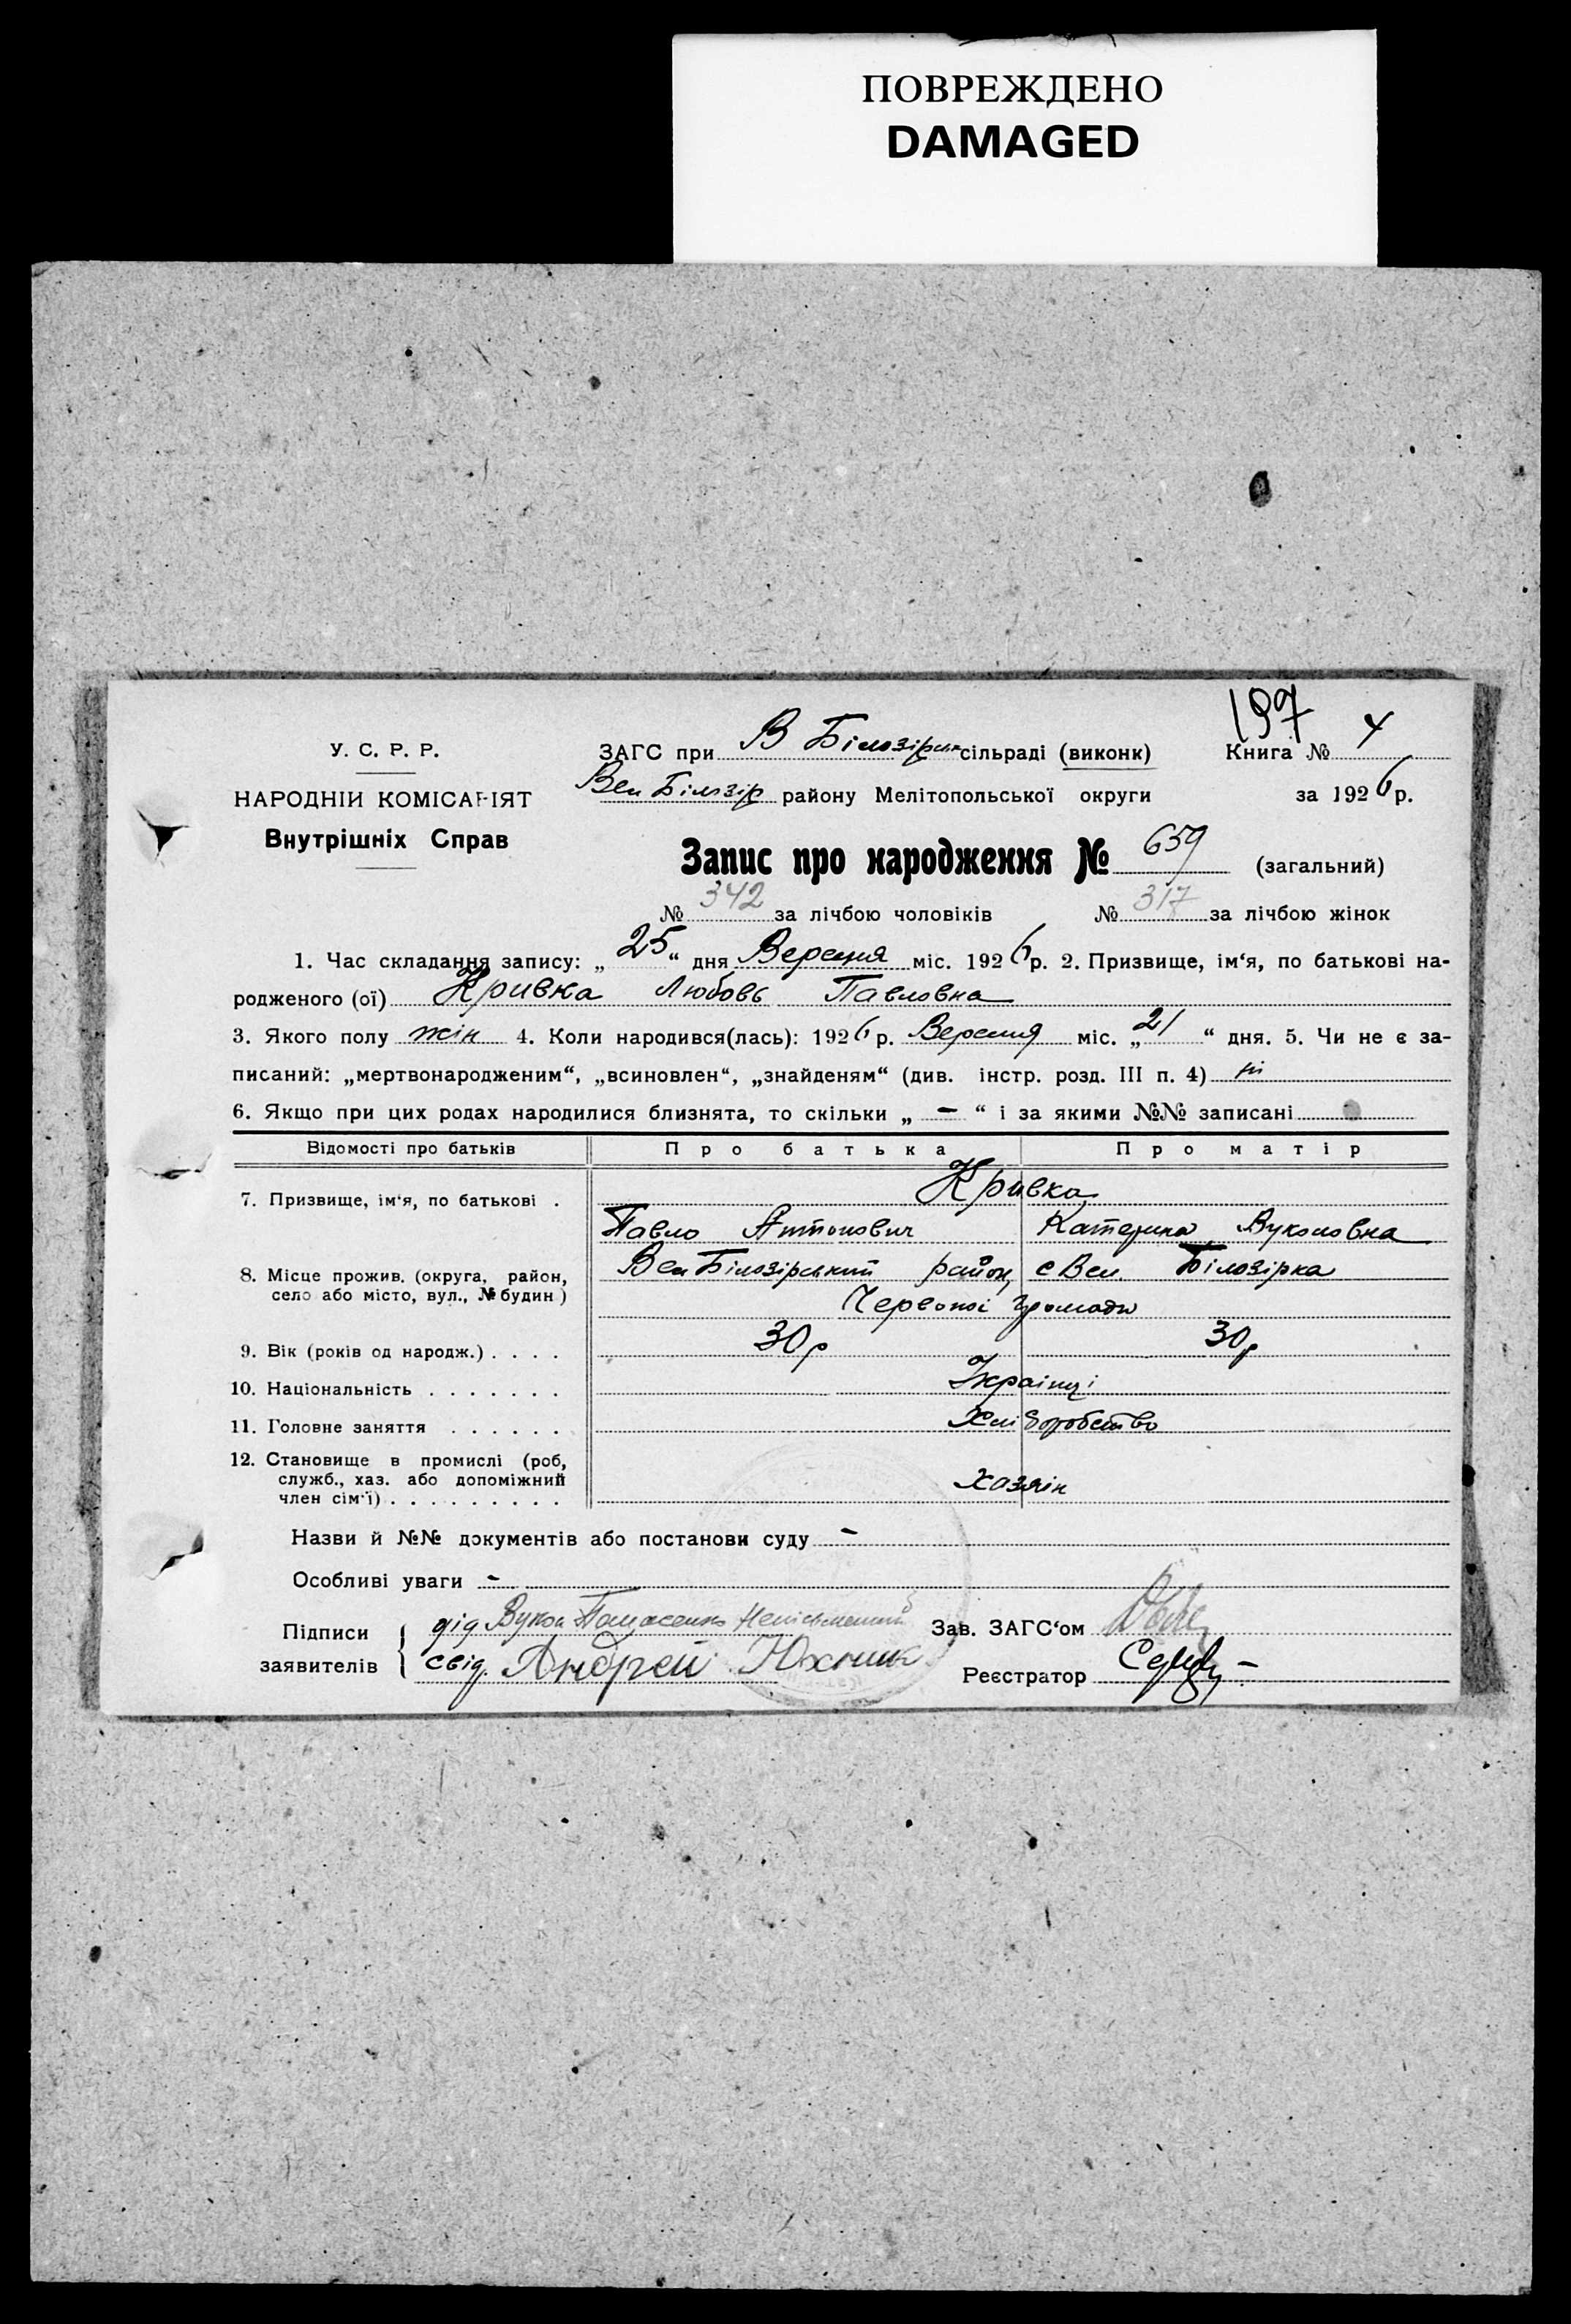 ПОВРЕЖДЕНО
DAMAGED
197
У. С. Р. Р.
НАРОДНІЙ КОМІСАРІЯТ
Внутрішніх Справ
ЗАГС при В Білозірськ сільраді (виконк) Книга № 4
Вел Білозір району Мелітопольської округи за 1926 р.
Запис про народження № 659 (загальний)
№ 342 за лічбою чоловіків № 317 за лічбою жінок
1. Час складання запису: „25“ дня Вересня міс. 1926 р. 2. Призвище, ім‘я, по батькові на-
родженого (ої) Кривка Любовь Павловна
3. Якого полу жін 4. Коли народився(лась): 1926 р. Вересня міс. „21“ дня. 5. Чи не є за-
писаний: „мертвонародженим“, „всиновлен“, „знайденям“ (див. інстр. розд. III п. 4) ні
6. Якщо при цих родах народилися близнята, то скільки „ — “ і за якими №№ записані
Відомості про батьків Про батька Про матір
7. Призвище, ім‘я, по батькові . Кривка
Павло Антонович Катерина Вуколовна
8. Місце прожив. (округа, район, село або місто, вул., № будин) Вел Білозірський район, с Вел. Білозірка
Червоної Громади
9. Вік (років од народж.) . . . . 30 р 30 р
10. Національність . . . . . . . Українці
11. Головне заняття . . . . . . Хліборобство
12. Становище в промислі (роб, служб., хаз. або допоміжний член сім‘ї) . . . . . . . . . Хазяін
Назви й №№ документів або постанови суду —
Особливі уваги —
Підписи заявителів
дід Вукол Неписьменний
свід. Андрей Юхник
Зав. ЗАГС‘ом
Реєстратор